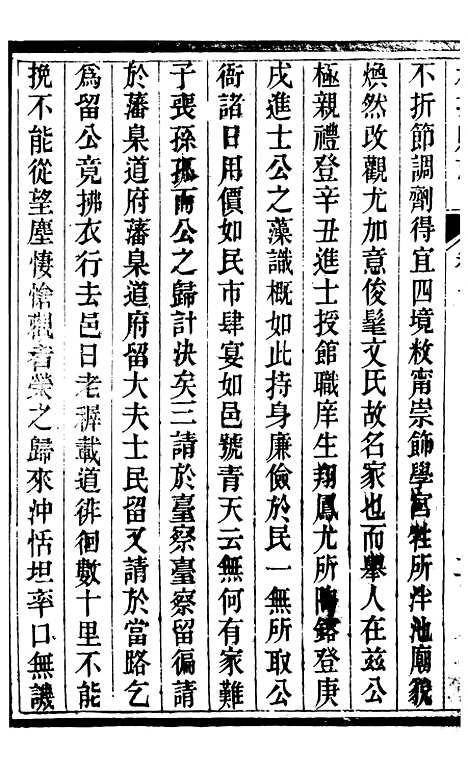 不折節調劑得宜四境敉甯崇飾學宮牲所泮池廟貌
煥然改觀尤加意俊髦文氏故名家也而舉人在兹公
極親禮登辛丑進士授館職庠生翔鳳尤所陶鎔登庚
戌進士公之藻識槪如此持身廉儉於民一無所取公
衙諸日用價如民市肆宴如邑號青天云無何有家難
子喪孫孤而公之歸計決矣三請於臺察臺察留徧請
於藩臬道府藩臬道府留大夫士民留又請於當路乞
爲留公竟拂衣行去邑日老穉載道徘徊數十里不能
挽不能從望塵悽愴觀者榮之歸來沖恬坦率口無譏